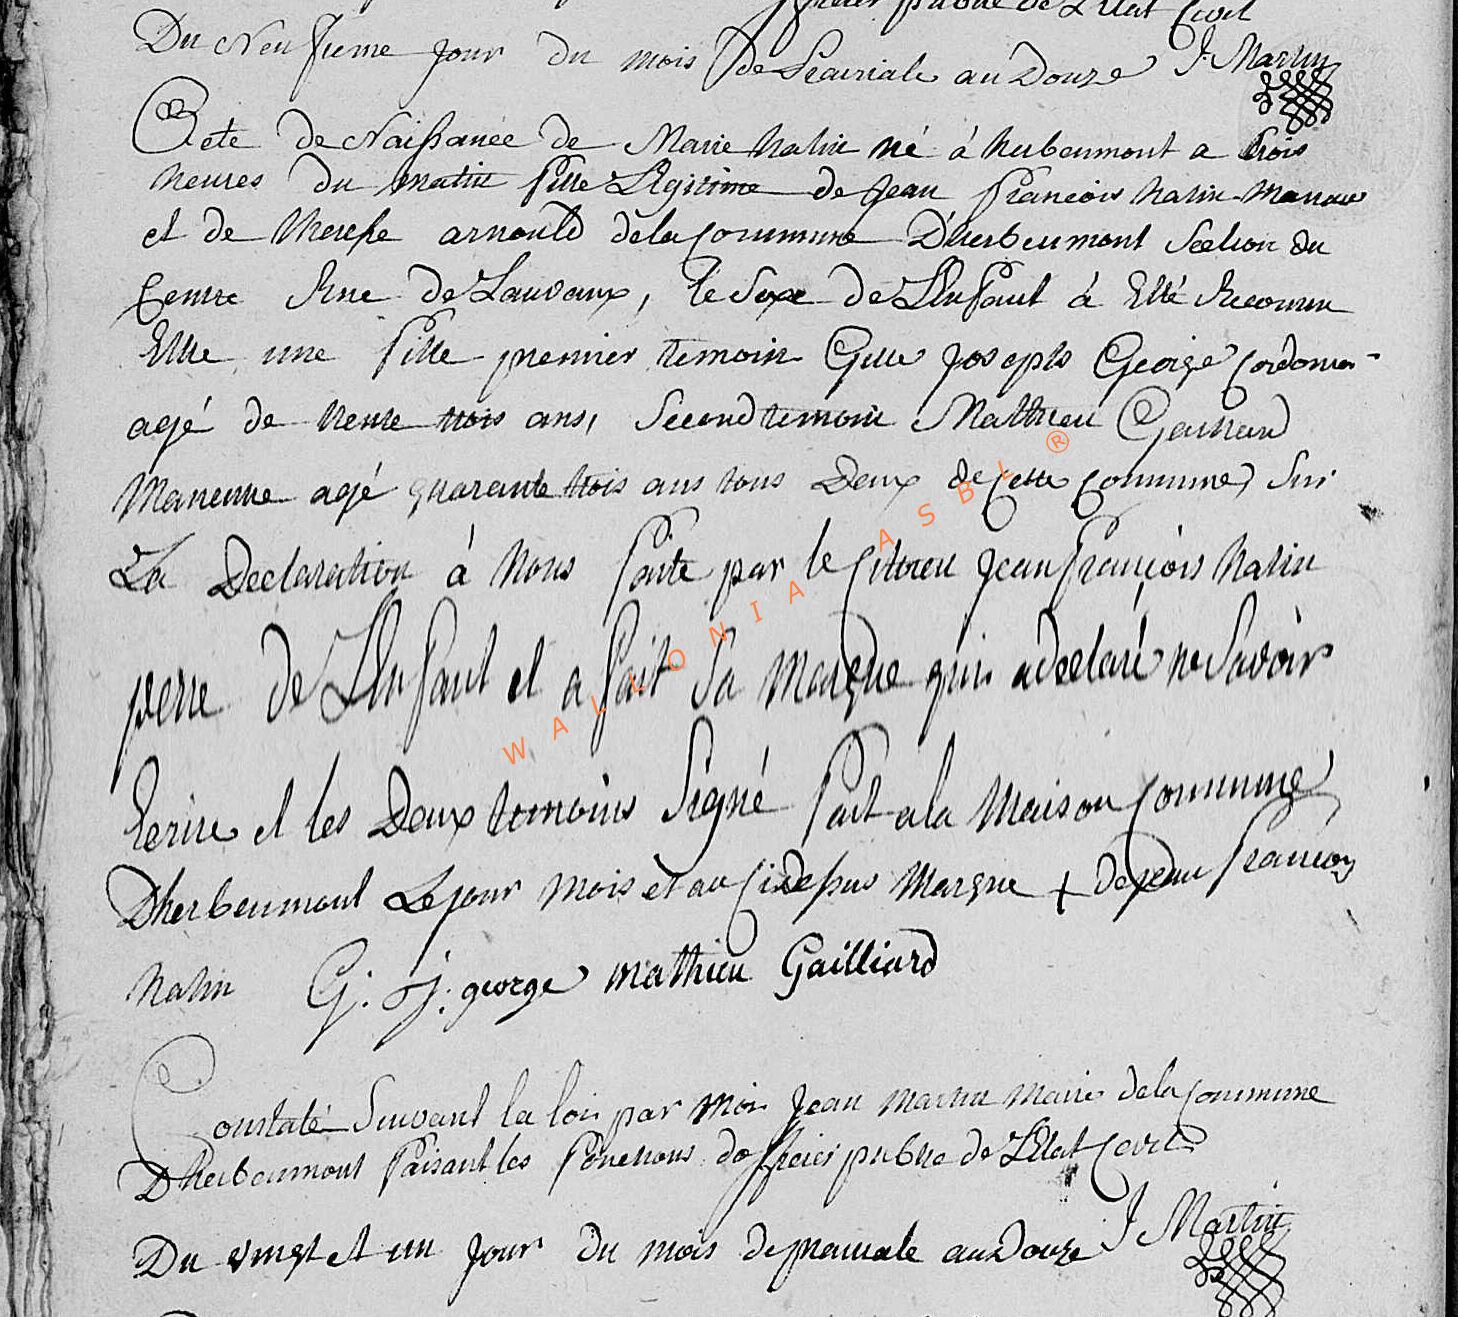 officier public de L'Etat Civil
Du Neufieme jour du mois de Prairiale an Douze J. Martin
Acte de Naissance de Marie Nalin né à herbeumont a trois
heures du matin fille Legitime de Jean François Nalin Manœuv
et de therese arnould dela Commune D'herbeumont Section du
Centre Rue de Lauvaux, le Sexe de L'Enfant à Etté Reconnu
Ettre une fille premier temoin Gille joseph George Cordonier
agé de trente trois ans, Second temoin Mathieu Gaillard
Maneuvre agé quarante trois ans tous Deux de Cette Commune, Sur
La Declaration à Nous faite par le Citoien Jean François Nalin
perre de L'Enfant et a fait Sa Marque qui a declaré ne Savoir
Ecrire et les Deux temoins Signé fait a la Maison Commune
D'herbeumont Le jour mois et an Cidessus Marque + de Jean François
Nalin G. J. george mathieu Gailliard
Constaté Suivant la loi par moi Jean Martin Maire dela Commune
D'herbeumont faisant les fonctions d'officier public de L'Etat Civil
J Martin
Du vingt et un jour du mois de prairiale an Douze
WALLONIA ASBL ®